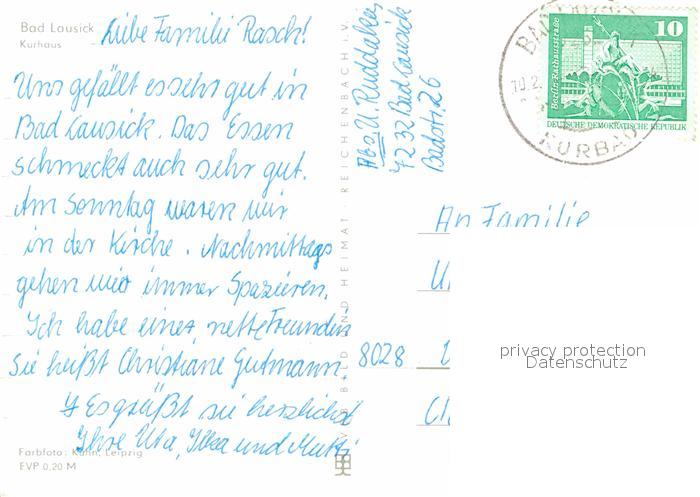 Bad Lausick
Kurhaus
Liebe Familie Rasch!
Uns gefällt es sehr gut in
Bad Lausick. Das Essen
schmeckt auch sehr gut.
Am Sonntag waren wir
in der Kirche. Nachmittags
gehen wir immer Spazieren.
Ich habe eine nette Freundin
Sie heißt Christiane Gutmann.
Es grüßt sie herzlichst
Ihre Uta, Ilka und Mutti
Farbfoto: Kühn, Leipzig
EVP 0,20 M
BILD UND HEIMAT · REICHENBACH I. V.
Abs. U. Ruddakies
7232 Bad Lausick
Badstr. 26
10
Berlin, Rathausstraße
DEUTSCHE DEMOKRATISCHE REPUBLIK
10.2.
KURBAD
An Familie
8028
privacy protection
Datenschutz